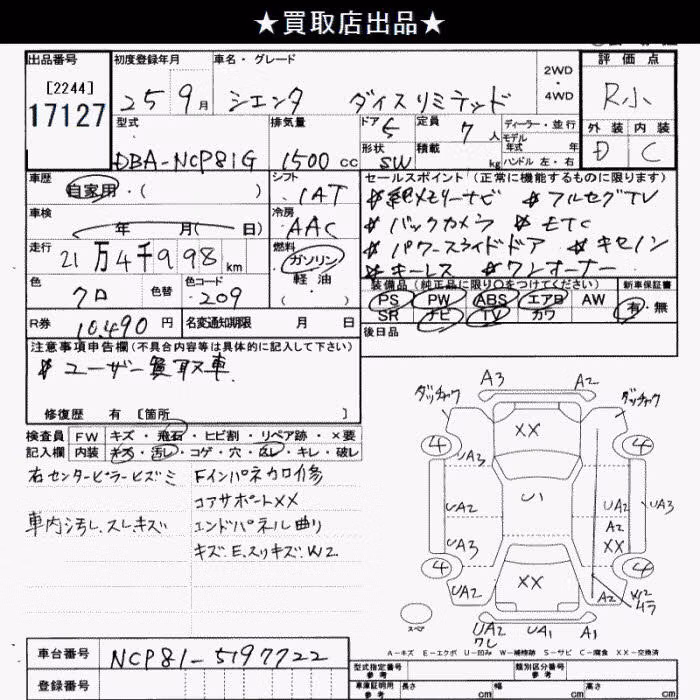 ★買取店出品★
出品番号 初度登録年月 車名・グレード 評価点
[2244]
17127
25年9月 シエンタ ダイスリミテッド 2WD・4WD R小
型式 排気量 ドア 5 定員 7人 ディーラー・並行
モデル年式 年
外装 内装
DBA-NCP81G 1500cc 形状 SW 積載 kg ハンドル 左・右 D C
車歴 自家用・( ) シフト 1AT
セールスポイント(正常に機能するものに限ります)
純メモリーナビ フルセグTV
車検 年 月( 日) 冷房 AAC
バックカメラ ETC
走行 21万4千998km 燃料 ガソリン・軽油・( )
パワースライドドア キセノン
キーレス ワンオーナー
色 クロ 色替 色コード 209
装備品(純正品に限り○をつけてください) 新車保証書
PS PW ABS エアB AW 有・無
SR ナビ TV カワ
R券 10,490円 名変通知期限 月 日
後日品
注意事項申告欄(不具合内容等は具体的に記入して下さい)
ユーザー買取車
修復歴 有 [箇所 ]
検査員 FW キズ・飛石・ヒビ割・リペア跡・×要
記入欄 内装 キズ・汚レ・コゲ・穴・スレ・キレ・破レ
右センターピラーヒズミ Fインパネカロ修
コアサポートXX
車内汚レ、スレ、キズ エンドパネル曲り
キズ、E、スリキズ、W2
A3 A2
ダッチャク ダッチャク
4 XX 4
UA3
U1
UA2 UA2 UA3
A2
UA3 XX
4 4
UA2 XX A2 W2
UA2 UA1 A1
ワレ
スペア
A－キズ E－エクボ U－凹み W－補修跡 S－サビ C－腐食 XX－交換済
車台番号 NCP81-5197722
型式指定番号 参考 類別区分番号 参考
登録番号
車庫証明用 参考 長さ cm 幅 cm 高さ cm